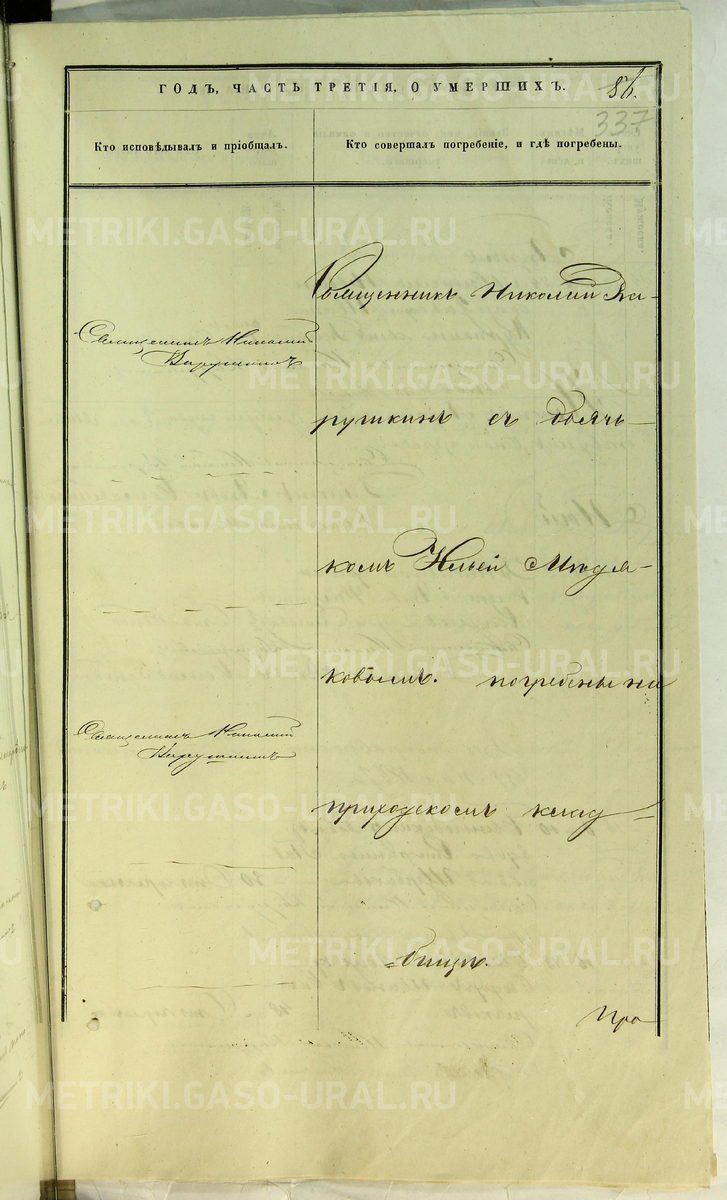 ГОДЪ, ЧАСТЬ ТРЕТІЯ, О УМЕРШИХЪ.
86.
337
Кто исповѣдывалъ и пріобщалъ.
Кто совершалъ погребеніе, и гдѣ погребены.
METRIKI.GASO-URAL.RU
Священникъ Николай
Священникъ Николай
рушкинъ съ дьяч-
комъ Ильей
ковымъ. погребены на
Священникъ Николай
приходскомъ клад-
=бищѣ.